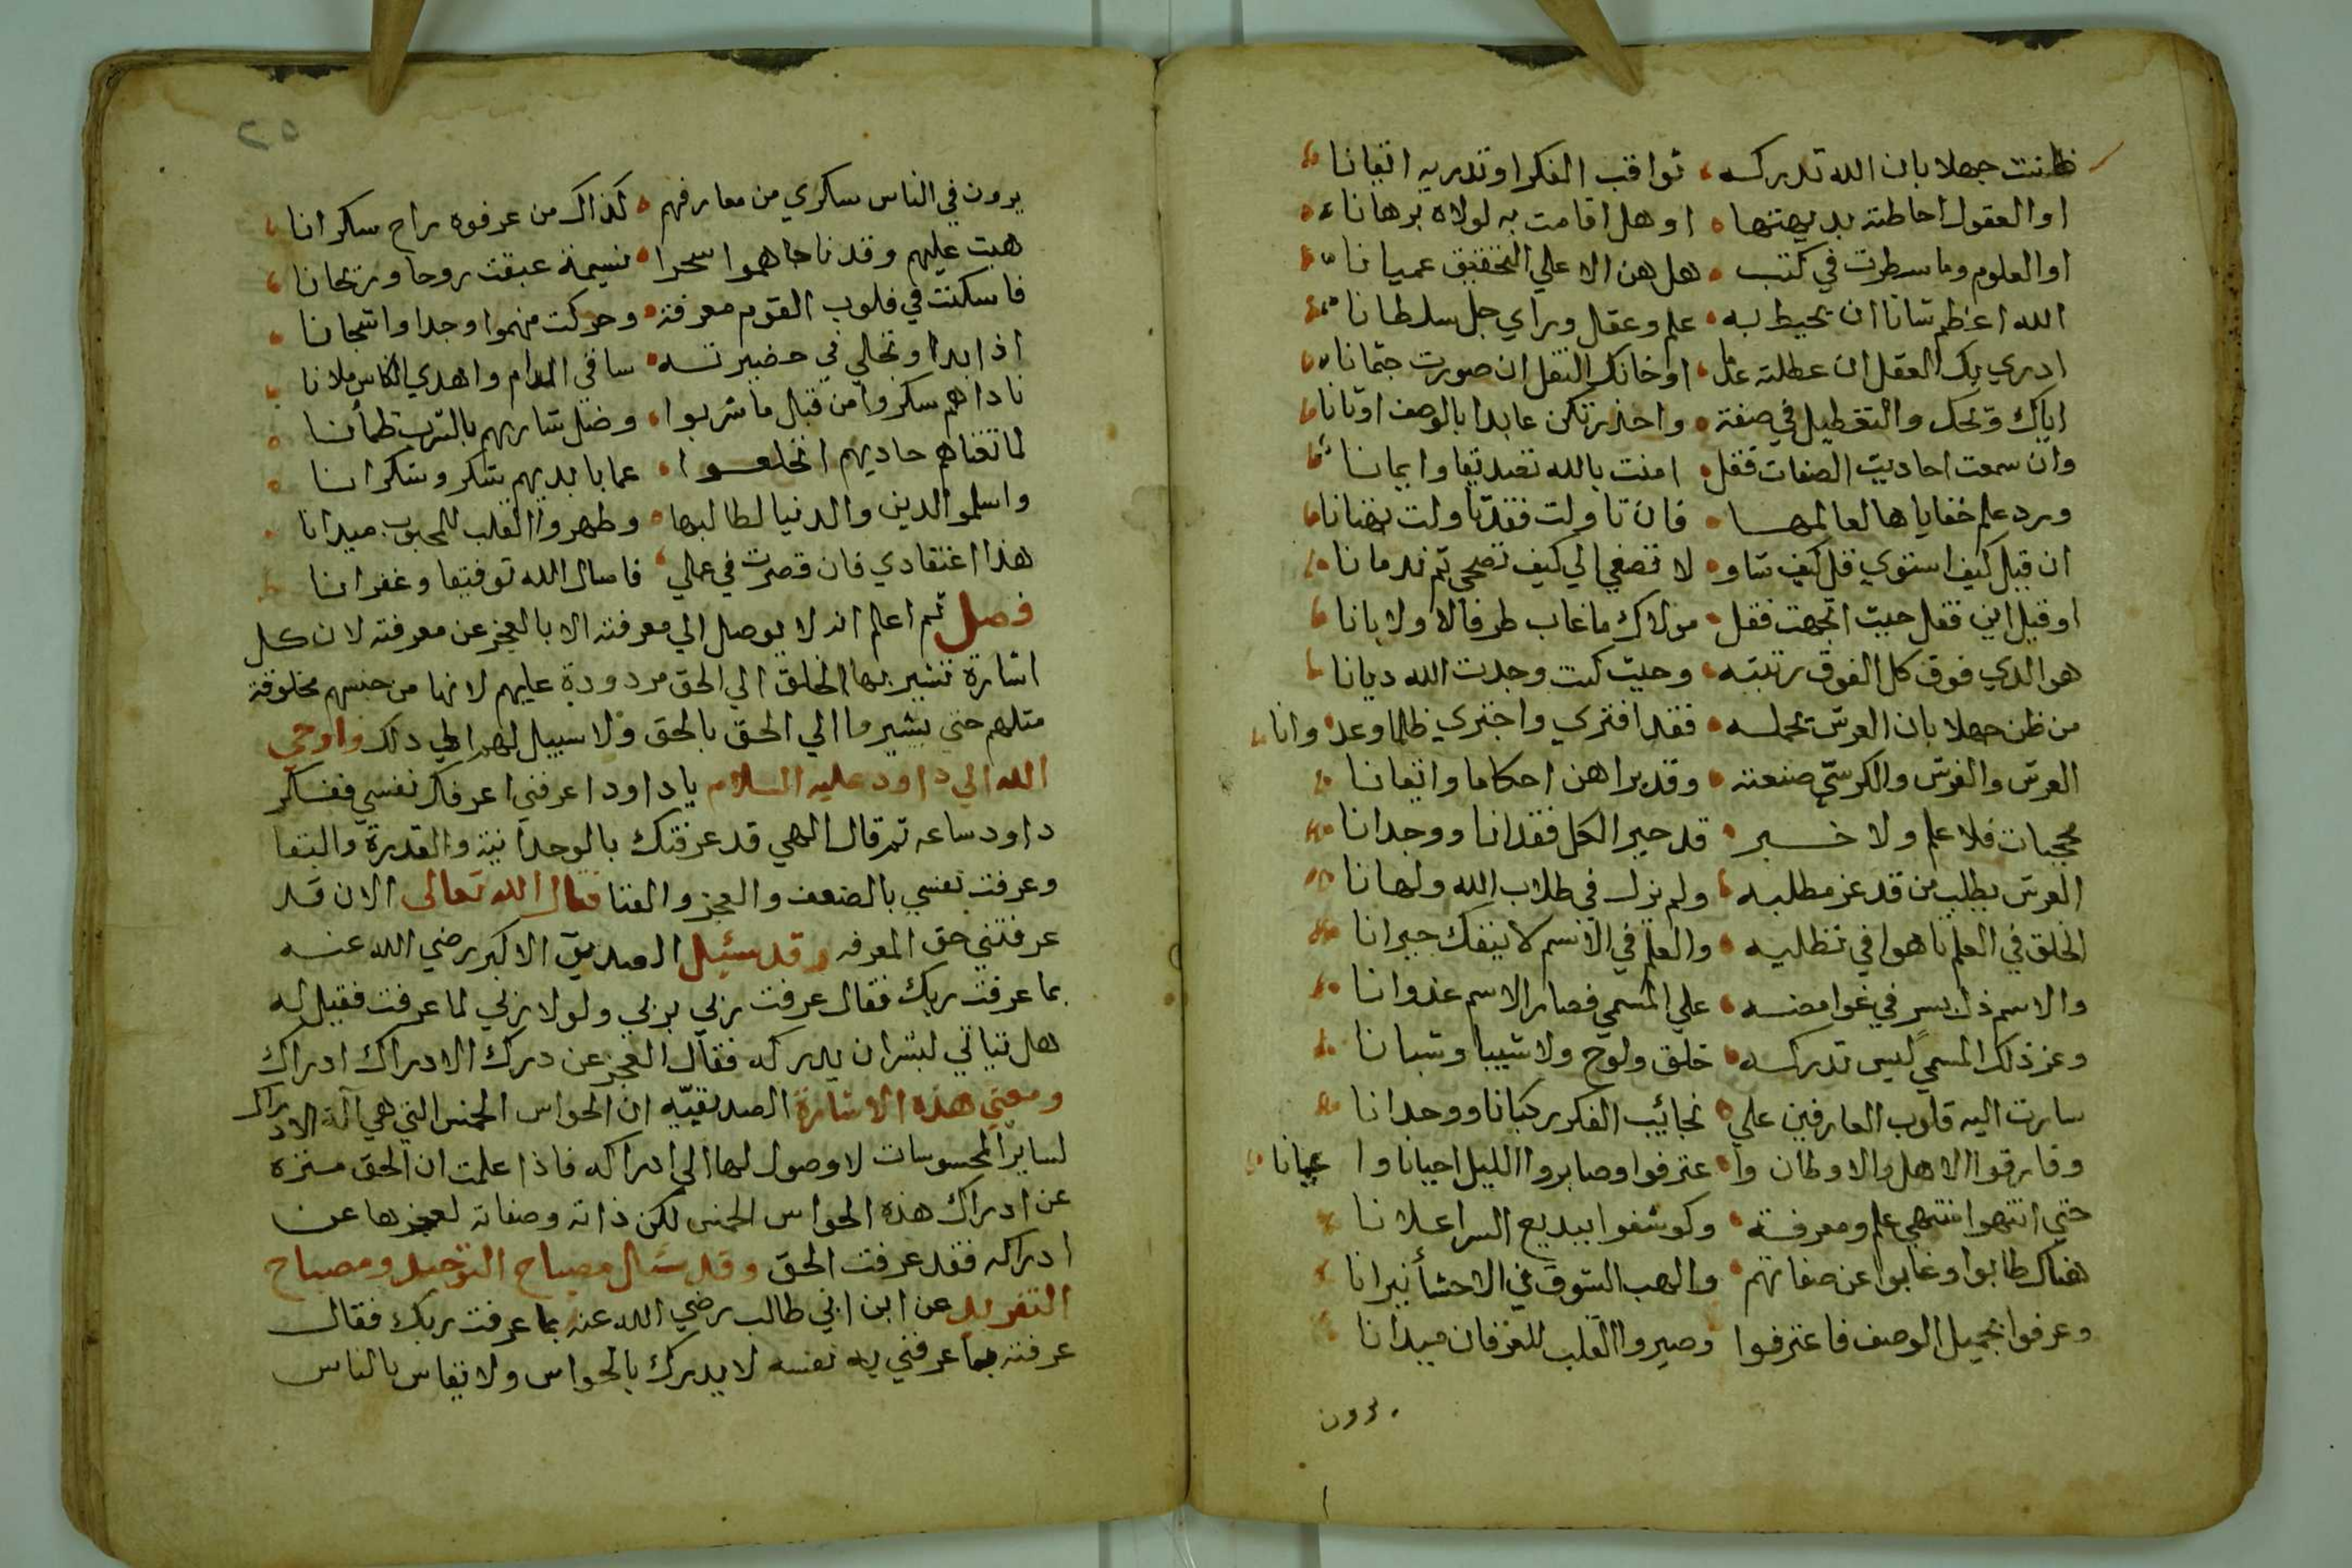 ظننت جهلا بان الله تدركه ثواقب الفكر او تدريه اتقانا
او العقول احاطته بديهتها او هل اقامت به لولاه برهانا
او العلوم وما سطرت في كتب هل هن الا علي التحقيق عميانا
الله اعظم شانا ان يحيط به علم وعقل وراي جل سلطانا
ادري بك العقل ان عطلته او خانك النقل ان صورت جثمانا
اياك ويحك والتعطيل في صفة واحذر تكن عابدا بالوصف اوثانا
وان سمعت احاديث الصفات فقل امنت بالله تصديقا وايمانا
ورد علم خفاياها لعالمها فان تاولت فقد تاولت بهتانا
ان قيل كيف استوي قل كيف شاو لا تصغي الي كيف تضحي ثم ندمانا
او قيل اين فقل حيث اتجهت فقل مولاك ما غاب طرفالا ولا بانا
هو الذي فوق كل الفوق رتبته وحيث كنت وجدت الله ديانا
من ظن جهلا بان العرش تحمله فقد افتري واجتري ظلما وعدوانا
العرش والفرش والكرسي صنعته وقد براهن احكاما واتقانا
محجبات فلا علم ولا خبر قد حير الكل فقدانا ووجدانا
العرش يطلب من قد عز مطلبه ولم يزل في طلاب الله ولهانا
الخلق في العلم تاهوا في تطلبه والعلم في الاسم لا ينفك حيرانا
والاسم ذل بسر في غوامضه علي المسمي فصار الاسم عنوانا
وعز ذلك المسمي ليس تدركه خلق ولوح ولا شيبا وشبانا
سارت اليه قلوب العارفين علي نجائب الفكر ركبانا ووحدانا
وفارقوا الاهل والاوطان وا عترفوا وصابروا الليل احيانا وا حيانا
حتي انتهوا منتهي علم ومعرفة وكوشفوا ببديع السر اعلانا
هناك طابوا وغابوا عن صفاتهم والهب الشوق في الاحشأ نيرانا
وعرفوا بجميل الوصف فاعترفوا وصيروا القلب للعرفان ميدانا
يرون
٥٢
يرون في الناس سكري من معارفهم كذاك من عرفوه راح سكرانا
هبت عليهم وقد ناجاهموا سحرا نسيمة عبقت روحا وريحانا
فاسكنت في قلوب القوم معرفة وحركت منهموا وجدا واشجانا
اذا بدا وتجلي في حضيرته ساقي المدام واهدي الكاس ملانا
ناداهم سكروا من قبل ما شربوا وضل شاربهم بالشرب ظمأنا
لما تغناهم حاديهم انخلعوا عما بايديهم شكر وشكرانا
واسلموا الدين والدنيا لطالبها وطهروا القلب للمحبوب ميدانا
هذا اعتقادي فان قصرت في عملي فاسال الله توفيقا وغفرانا
فصل ثم اعلم انه لا يوصل الي معرفته الا بالعجز عن معرفته لان كل
اشارة تشير بها الخلق الي الحق مردودة عليهم لانها من جنسهم مخلوقة
مثلهم حتي يشيروا الي الحق بالحق ولا سبيل لهم الي ذلك واوحي
الله الي داود عليه السلام يا داود اعرفني اعرفك نفسي ففكر
داود ساعه ثم قال الهي قد عرفتك بالوحدانية والقدرة والبقا
وعرفت نفسي بالضعف والعجز والفنا فقال الله تعالى الان قد
عرفتني حق المعرفه وقد سئيل الصديق الاكبر رضي الله عنه
بما عرفت ربك فقال عرفت ربي بربي ولولا ربي لما عرفت فقيل له
هل تياتي لبشر ان يدركه فقال العجز عن درك الادراك ادراك
ومعني هذه الاشارة الصديقيّه ان الحواس الخمس التي هي آلة الادراك
لساير المحسوسات لا وصول لها الي ادراكه فاذا علمت ان الحق منزه
عن ادراك هذه الحواس الخمس لكن ذاته وصفاته لعجزها عن
ادراكه فقد عرفت الحق وقد سئال مصباح التوحيد ومصباح
التفريد عن ابن ابي طالب رضي الله عنه بما عرفت ربك فقال
عرفته بما عرفني به نفسه لا يدرك بالحواس ولا يقاس بالناس